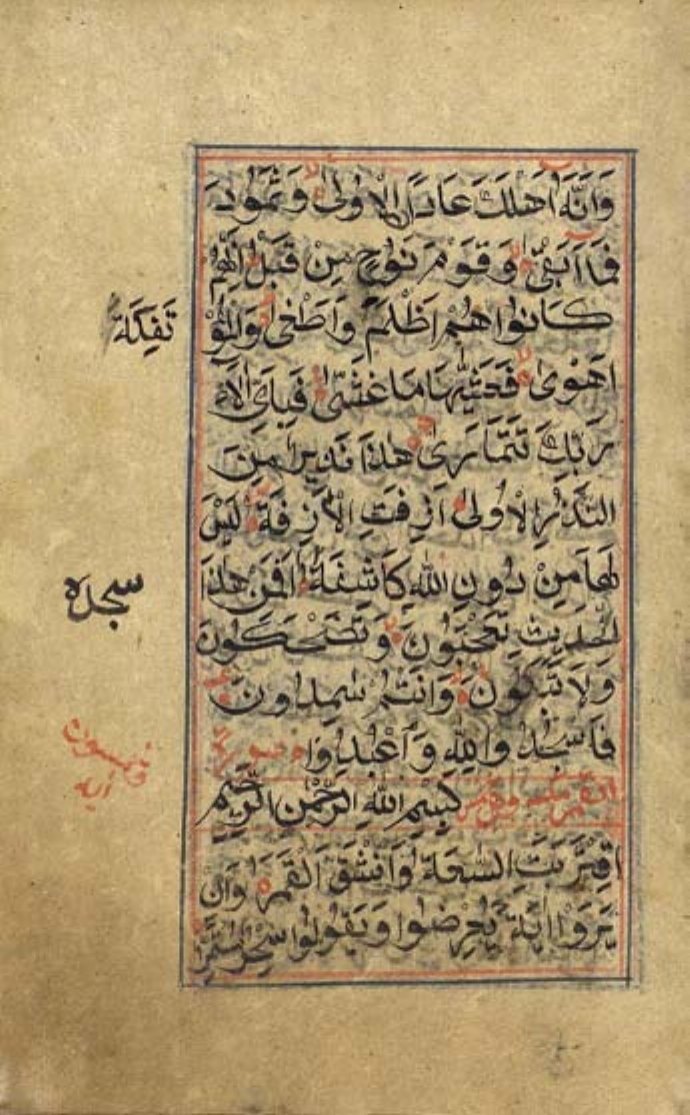 وَاَنَّهُ اَهْلَكَ عَادَاَنِ الْاُولٰى وَثَمُوْدَ
فَمَا اَبْقٰى وَقَوْمَ نُوْحٍ مِنْ قَبْلُ اِنَّهُمْ
كَانُوْا هُمْ اَظْلَمَ وَاَطْغٰى وَالْمُؤْ
تَفِكَةَ
اَهْوٰى فَغَشّٰيهَا مَا غَشّٰى فَبِاَىِّ اٰلَاۤءِ
رَبِّكَ تَتَمَارٰى هٰذَا نَذِيْرٌ مِنَ
النُّذُرِ الْاُولٰى اَزِفَتِ الْاٰزِفَةُ لَيْسَ
لَهَا مِنْ دُونِ اللّٰهِ كَاشِفَةٌ اَفَمِنْ هٰذَا
الْحَدِيثِ تَعْجَبُوْنَ وَتَضْحَكُوْنَ
سجده
وَلَا تَبْكُوْنَ وَاَنْتُمْ سٰمِدُوْنَ
فَاسْجُدُوا لِلّٰهِ وَاعْبُدُوْا سورة
القمر بِسْمِ اللّٰهِ الرَّحْمٰنِ الرَّحِيْمِ
وخمسون
آية
اِقْتَرَبَتِ السَّعَةُ وَانْشَقَّ الْقَمَرُ وَاِنْ
يَرَوْا اٰيَةً يُعْرِضُوْا وَيَقُوْلُوْا سِحْرٌ مُسْتَمِرٌّ